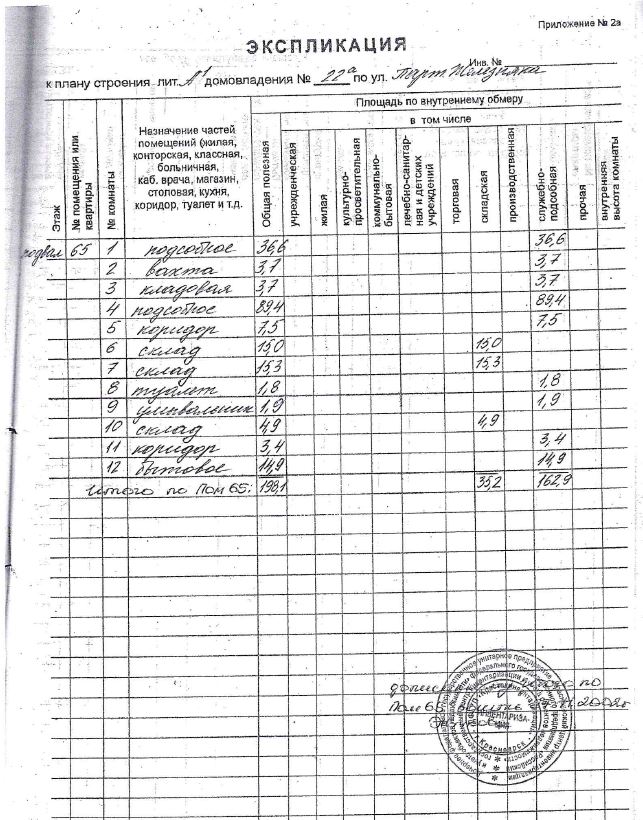 Приложение № 2а
ЭКСПЛИКАЦИЯ
Инв. №
к плану строения лит. А¹ домовладения № 22а по ул. Парт. Железняка
Площадь по внутреннему обмеру
в том числе
Этаж
№ помещения или квартиры
№ комнаты
Назначение частей
помещений (жилая,
конторская, классная,
больничная,
каб. врача, магазин,
столовая, кухня,
коридор, туалет и т.д.
Общая полезная
учрежденческая
жилая
культурно-просветительная
коммунально-бытовая
лечебно-санитарная и детских учреждений
торговая
складская
производственная
служебно-подсобная
прочая
внутренняя высота комнаты
подвал 65 1 подсобное 36,6 36,6
2 вахта 3,7 3,7
3 кладовая 3,7 3,7
4 подсобное 89,4 89,4
5 коридор 7,5 7,5
6 склад 15,0 15,0
7 склад 15,3 15,3
8 туалет 1,8 1,8
9 умывальник 1,9 1,9
10 склад 4,9 4,9
11 коридор 3,4 3,4
12 бытовое 14,9 14,9
Итого по Пом 65: 198,1 35,2 162,9
по
Пом 65 2002г
г. Красноярск